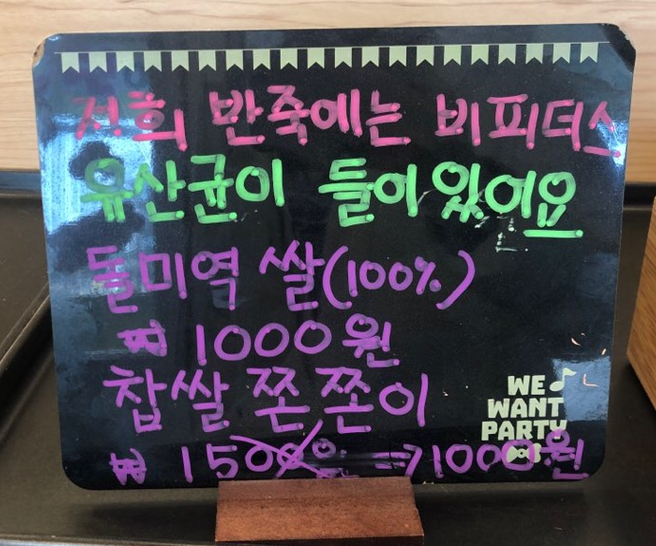 저희 반죽에는 비피더스
유산균이 들어있어요
돌미역 쌀(100%)
₩ 1000원
찹쌀 쫀쫀이
₩ 1500원 ⇒ 1000원
WE
WANT
PARTY